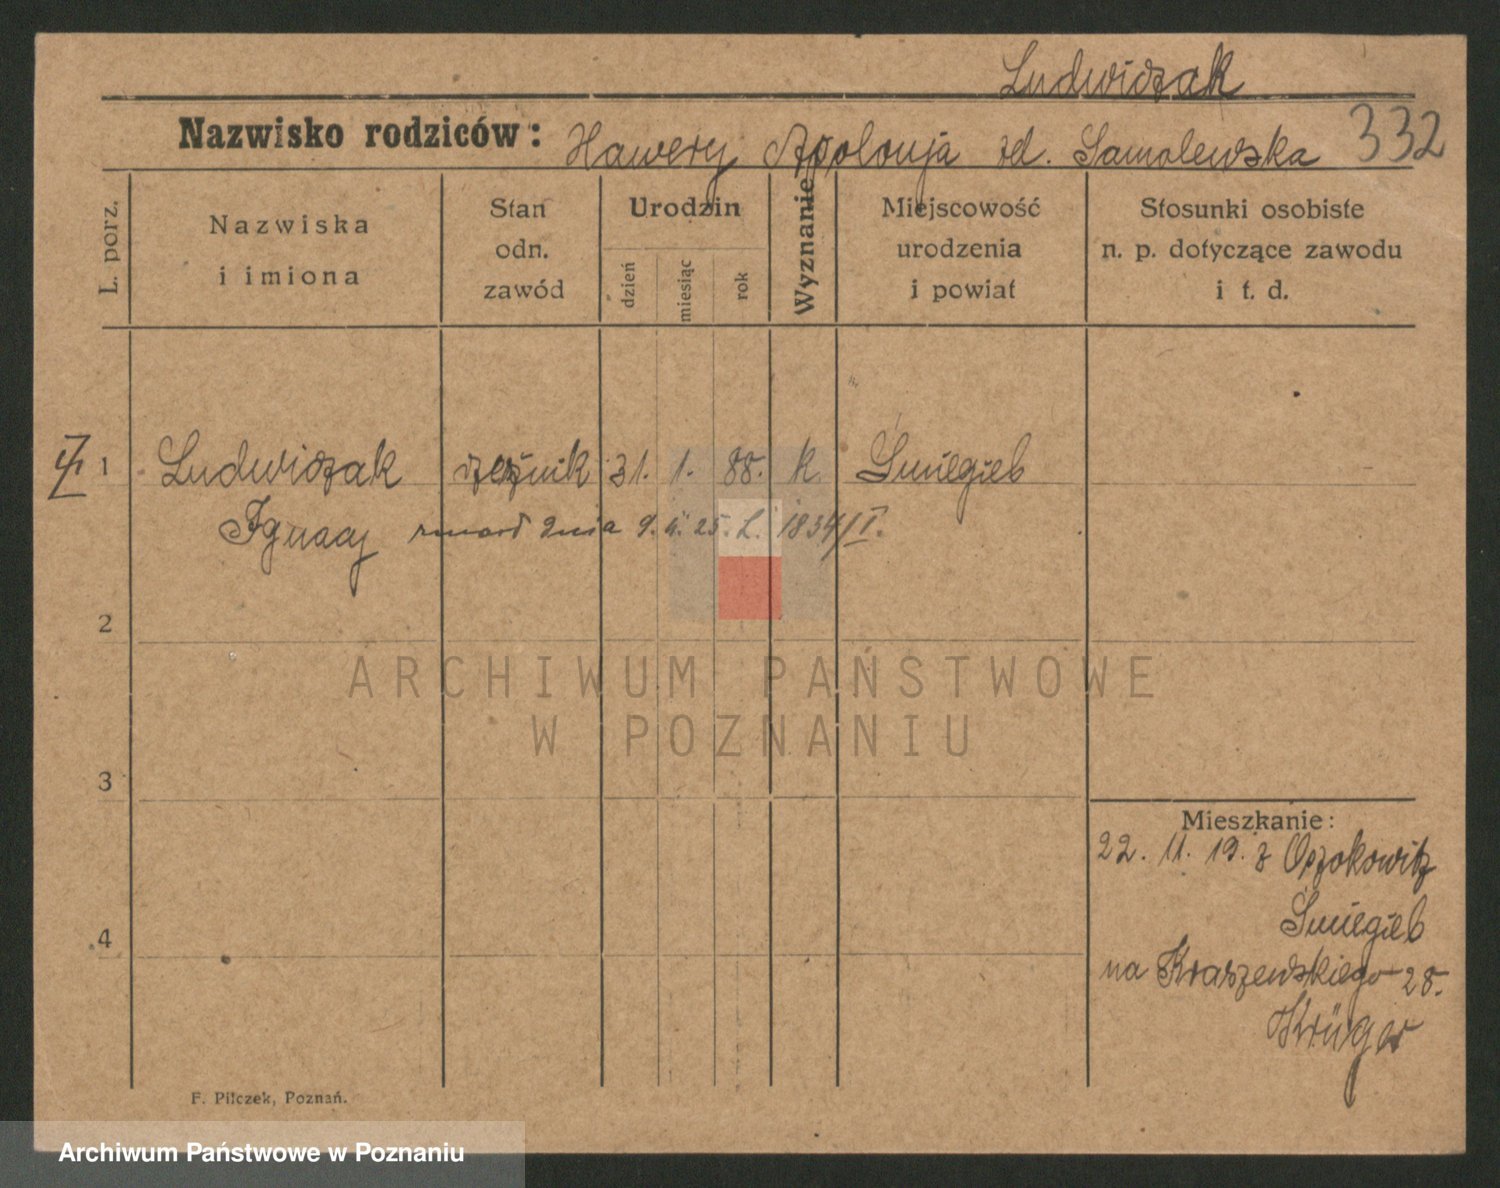 Ludwiczak
Nazwisko rodziców: Xawery Apolonja zd. Samolewska 332
L. porz.
Nazwiska
i imiona
Stan
odn.
zawód
Urodzin
dzień
miesiąc
rok
Wyznanie
Miejscowość
urodzenia
i powiat
Stosunki osobiste
n. p. dotyczące zawodu
i t. d.
1 Ludwiczak rzeźnik 31. 1. 88. k Śmigiel
Ignacy zmarł dnia 9. 4. 25. L. 1834/II.
2
ARCHIWUM PAŃSTWOWE
W POZNANIU
3
Mieszkanie:
22. 11. 19. z
Śmigiel
4
na Kraszewskiego 28.
Krüger
F. Pilczek, Poznań.
Archiwum Państwowe w Poznaniu